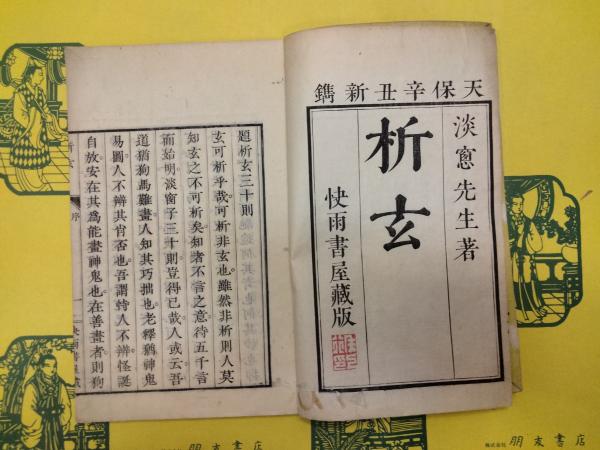 天保辛丑新鐫
淡窻先生著
析玄
快雨書屋藏版
題析玄三十則
玄可析乎哉可析非玄也雖然非析則人莫
知玄之不可析矣知者不言之意待五千言
而始明淡窗子三十則豈得已哉人或云吾
道猶狗馬難畫人知其巧拙也老釋猶神鬼
易圖人不辨其肖否也吾謂特人不辨怪誕
自放安在其為能畫神鬼也在善畫者則狗
序
株式会社 朋友書店